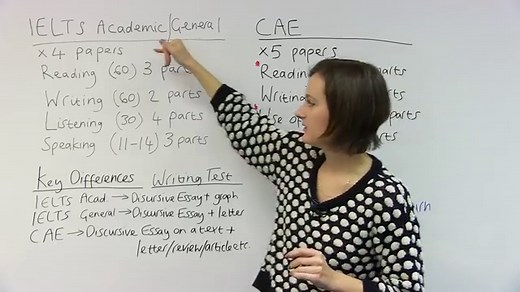 IELTS Academic/General
x 4 papers
Reading (60) 3 parts
Writing (60) 2 parts
Listening (30) 4 parts
Speaking (11-14) 3 parts
Key Differences Writing Test
IELTS Acad. → Discursive Essay + graph
IELTS General → Discursive Essay + letter
CAE → Discursive Essay on a text +
letter/review/article etc.
CAE
x 5 papers
Reading parts
Writing parts
Use of parts
parts